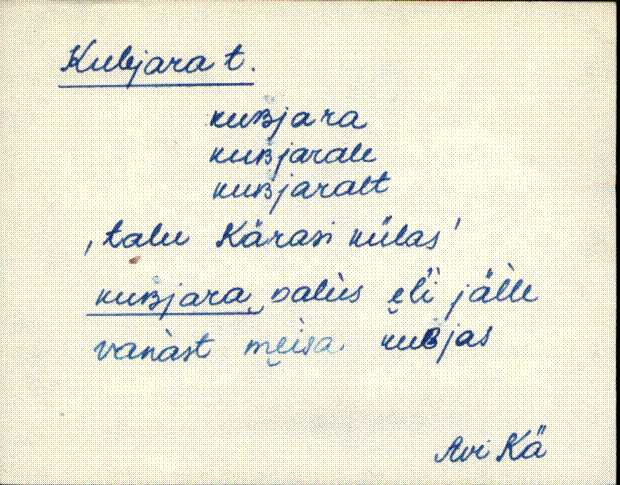 Kubjara t.
kuʙjara
kuʙjarale
kuʙjaralt
‚talu Kärasi külas'
kuʙjara‿ᴅalùs ęli̬ jälle
vanast męisa kuʙjas
Avi Kä